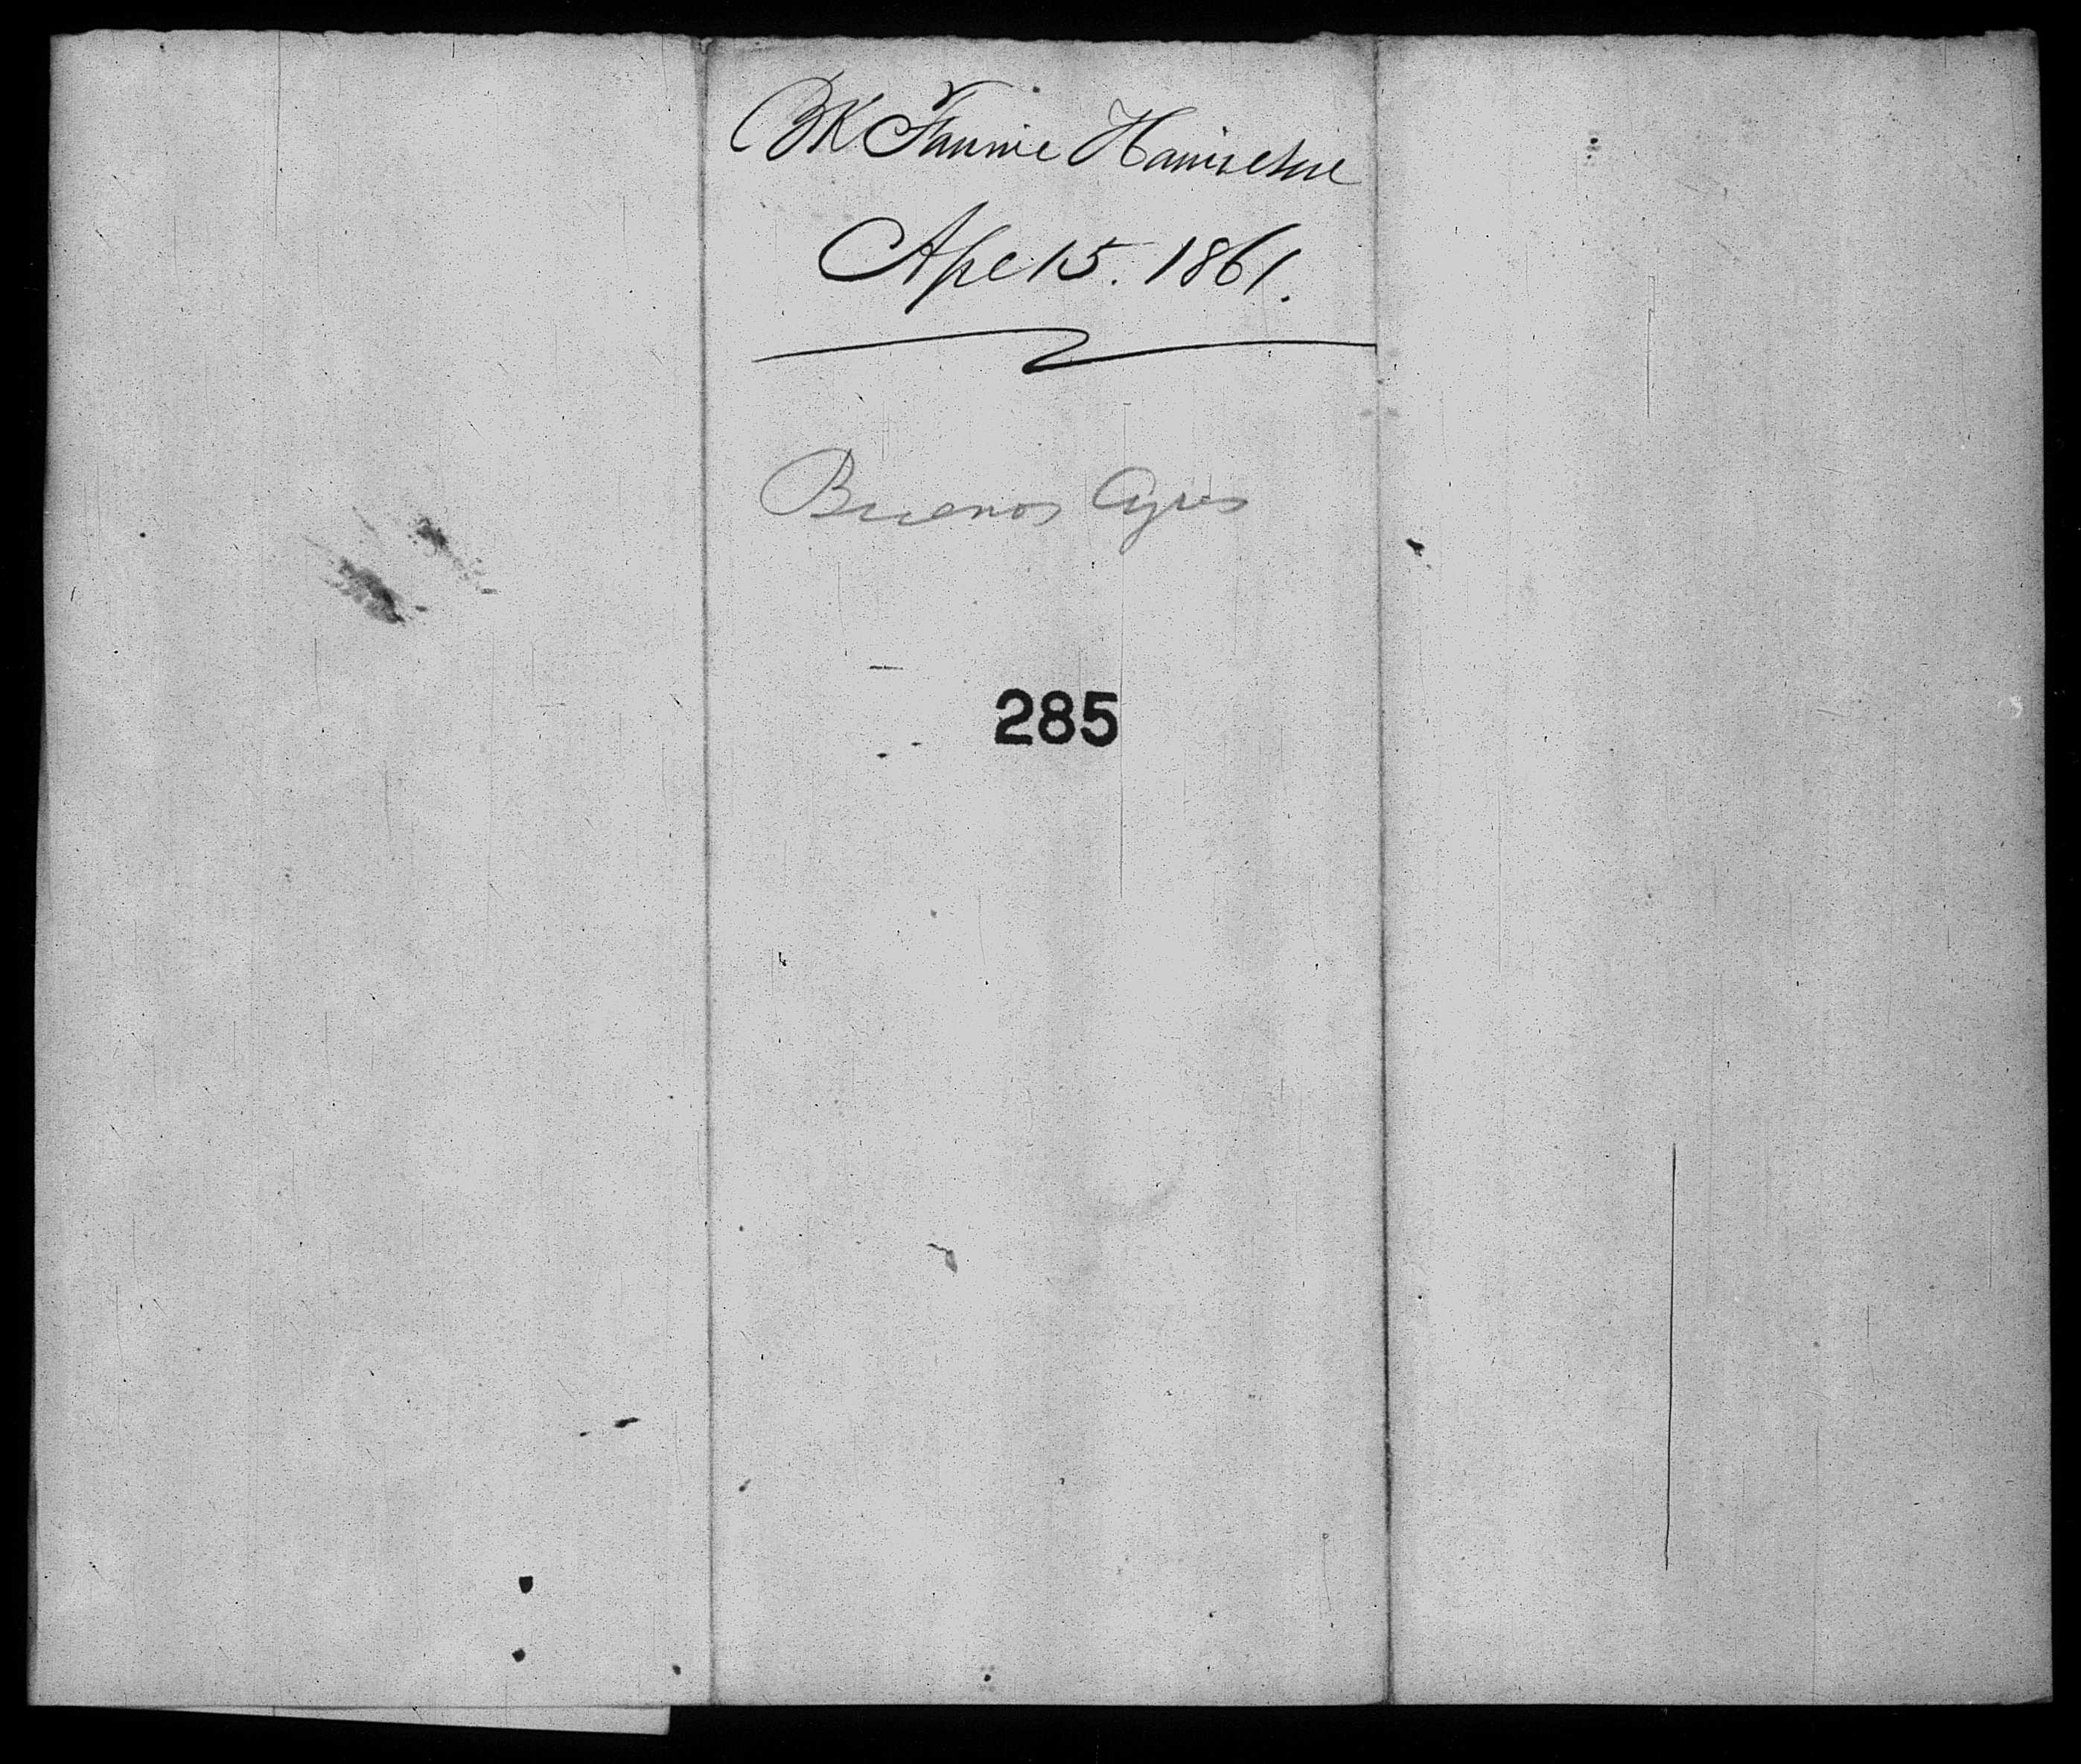 Bk Fannie Hamilen
Apl 15. 1861.
Buenos Ayres
285